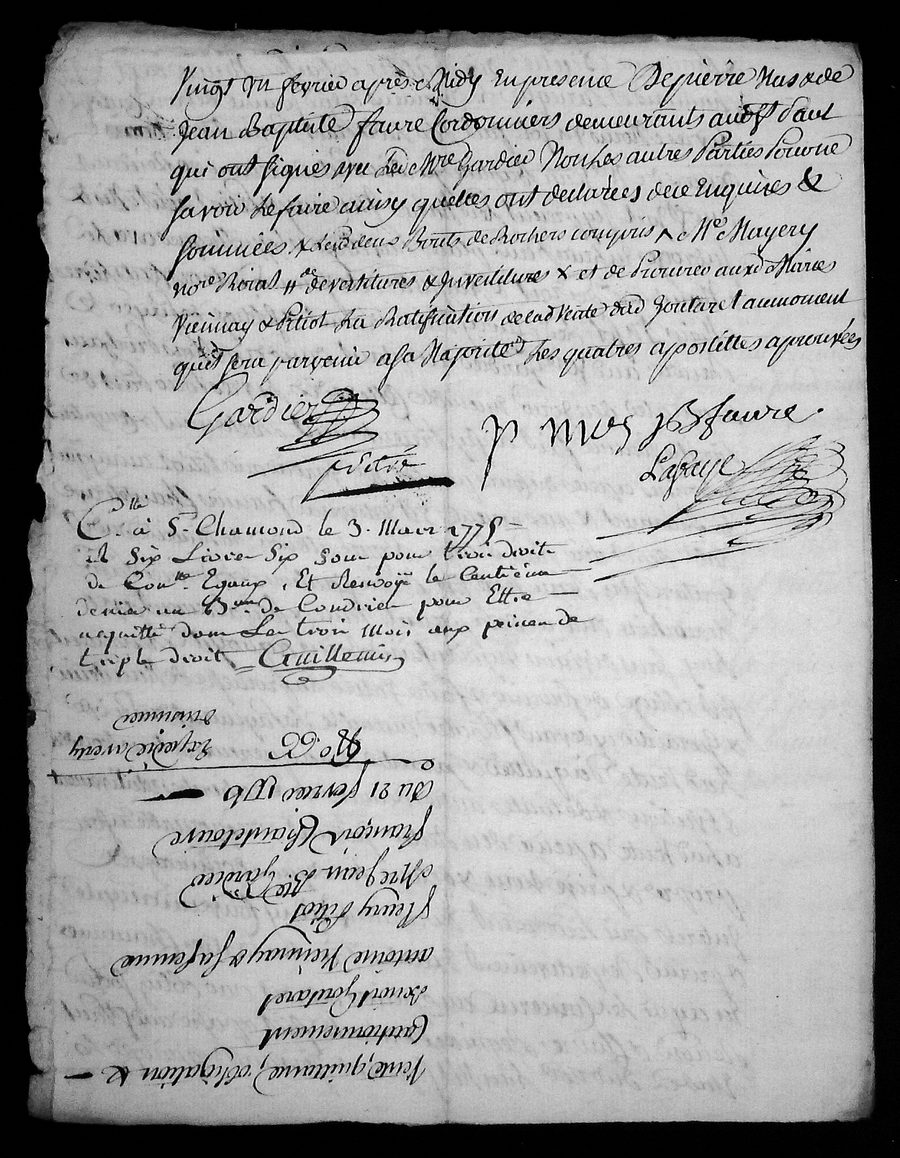 Vingt un fevrier après Midy En presence De pierre Mas & de
Jean Baptiste faure Cordonniers demeurants audt
qui ont signés avec Led Mre Gardier Non Les autres Parties Pour ne
savoir Le faire ainsy quelles ont declarées de ce Enquises &
sommées x Lesd deux Bouts de Rochers compris x Me Mayery
nore Roial de vestitures & Investitures x et de Procurer auxd Maries
Peinnay & Pitiot La Ratification de lad Vente dud Goutaret au moment
quil sera parvenu a sa Majorité Les quatres apostilles aprouvées
Gardier
p mas JB faure
Lafaye
Clle à St Chamond le 3. Mars 1776
R Six Livres Six Sous pour trois droits
de Conlle Egaux, Et Renvoyé le Centième
denier au Bau de Condrieu pour Etre
acquitté dans Les trois Mois aux peines de
triple droit Guillemin
Vente, quittance, obligation &
Cautionnement
Benoit Goutaret
antoine Peinnay & sa femme
fleury Pitiot
Mre Jean Bte Gardier
françois Chantelouve
Du 21 fevrier 1776
Expedié